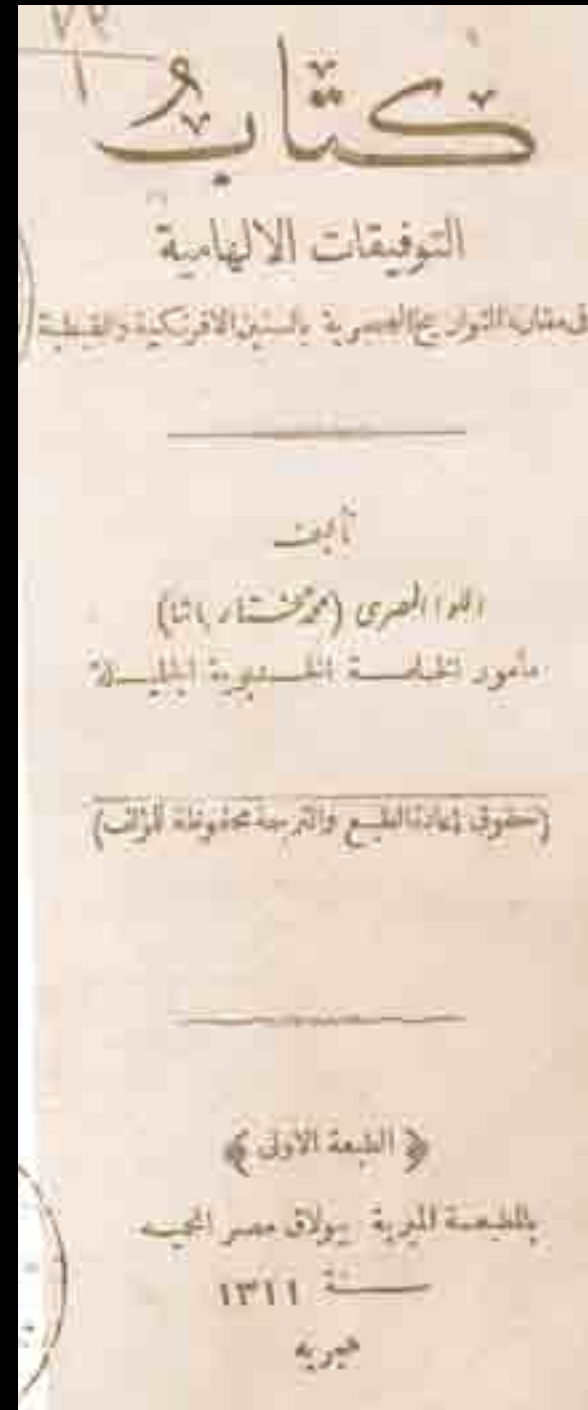 ٧٢
١
كتابُ
التوفيقات الالهامية
فى مقارنة التواريخ الهجرية بالسنين الافرنكية والقبطية
تأليف
اللوا المصرى (محمد مختار باشا)
مأمور الخاصة الخديوية الجليلة
(حقوق اعادة الطبع والترجمة محفوظة للمؤلف)
﴿ الطبعة الاولى ﴾
بالمطبعة الميرية ببولاق مصر المحميه
سنة ١٣١١
هجريه